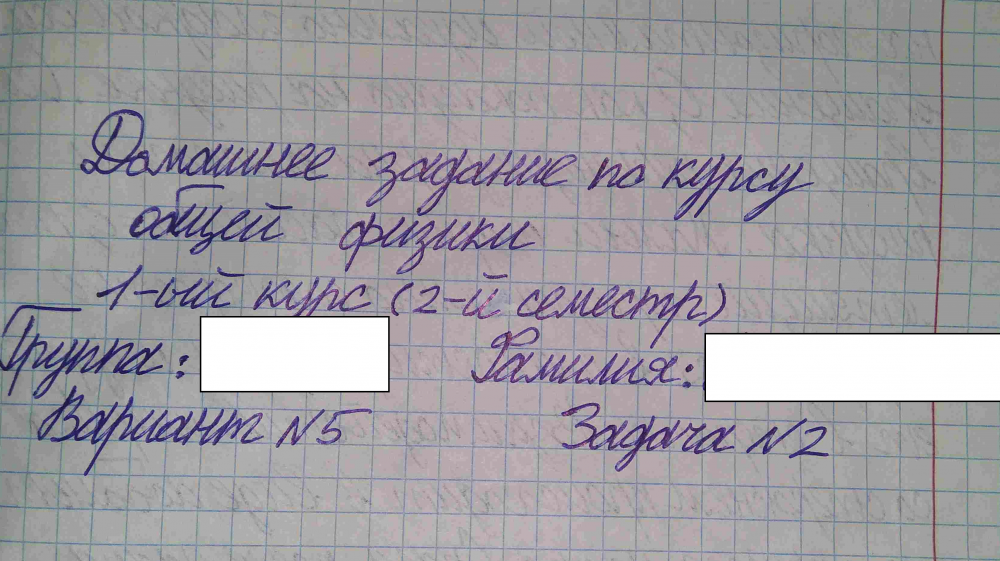 Домашнее задание по курсу
общей физики
1-ый курс (2-й семестр)
Группа: Фамилия:
Вариант №5 Задача №2